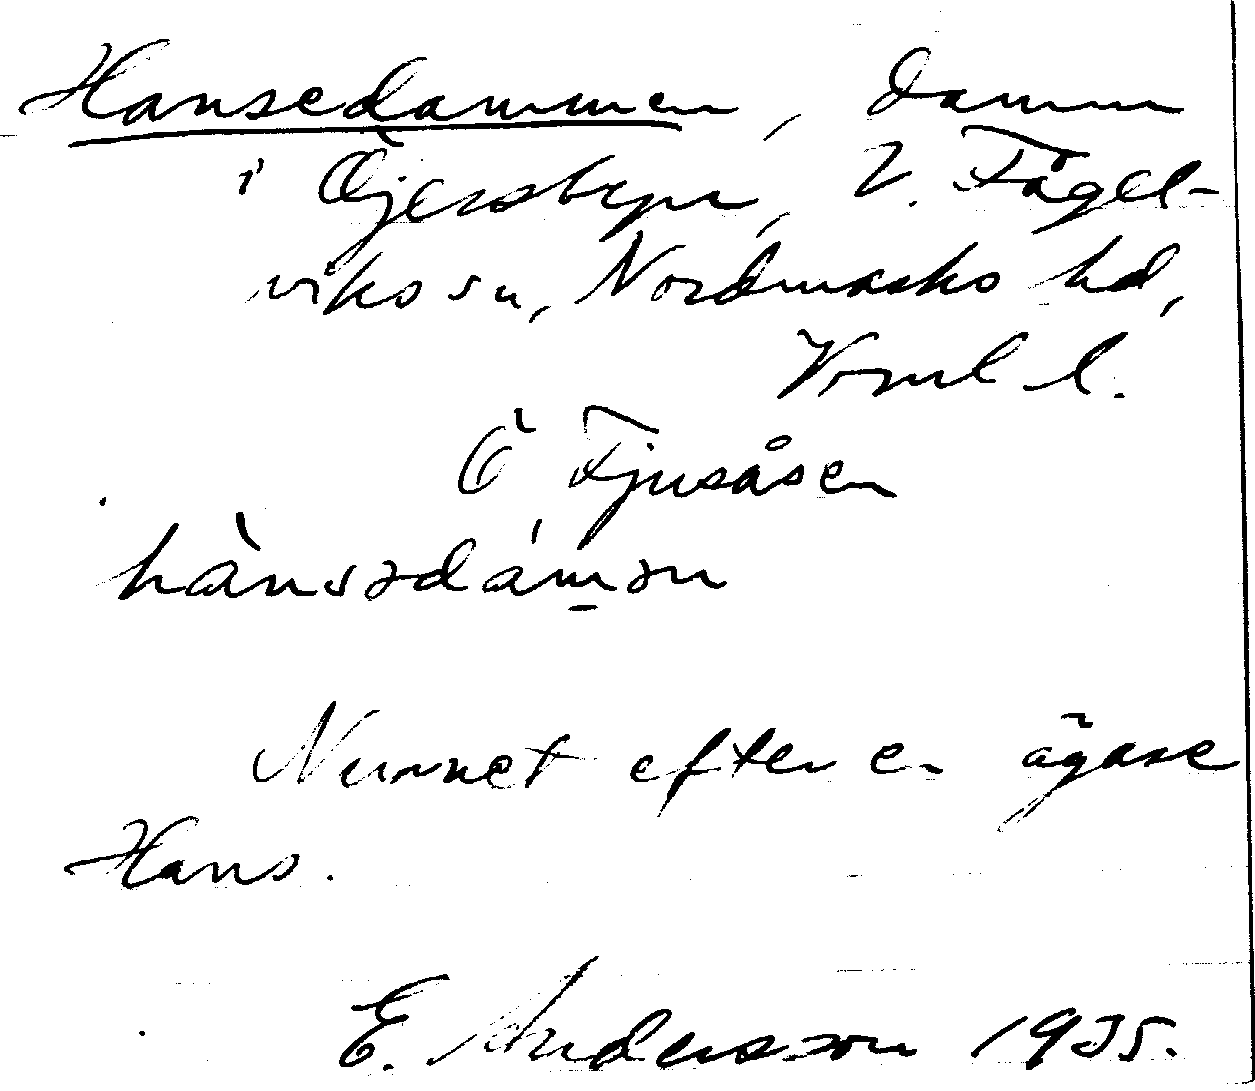 Hansedammen, damm
i Öjersbyn, V. Fågel-
viks sn, Nordmarks hd,
Verml l.
Ö Fjusåsen
hànsədámən
Numnet efter en ägare
Hans.
E. Andersson 1935.